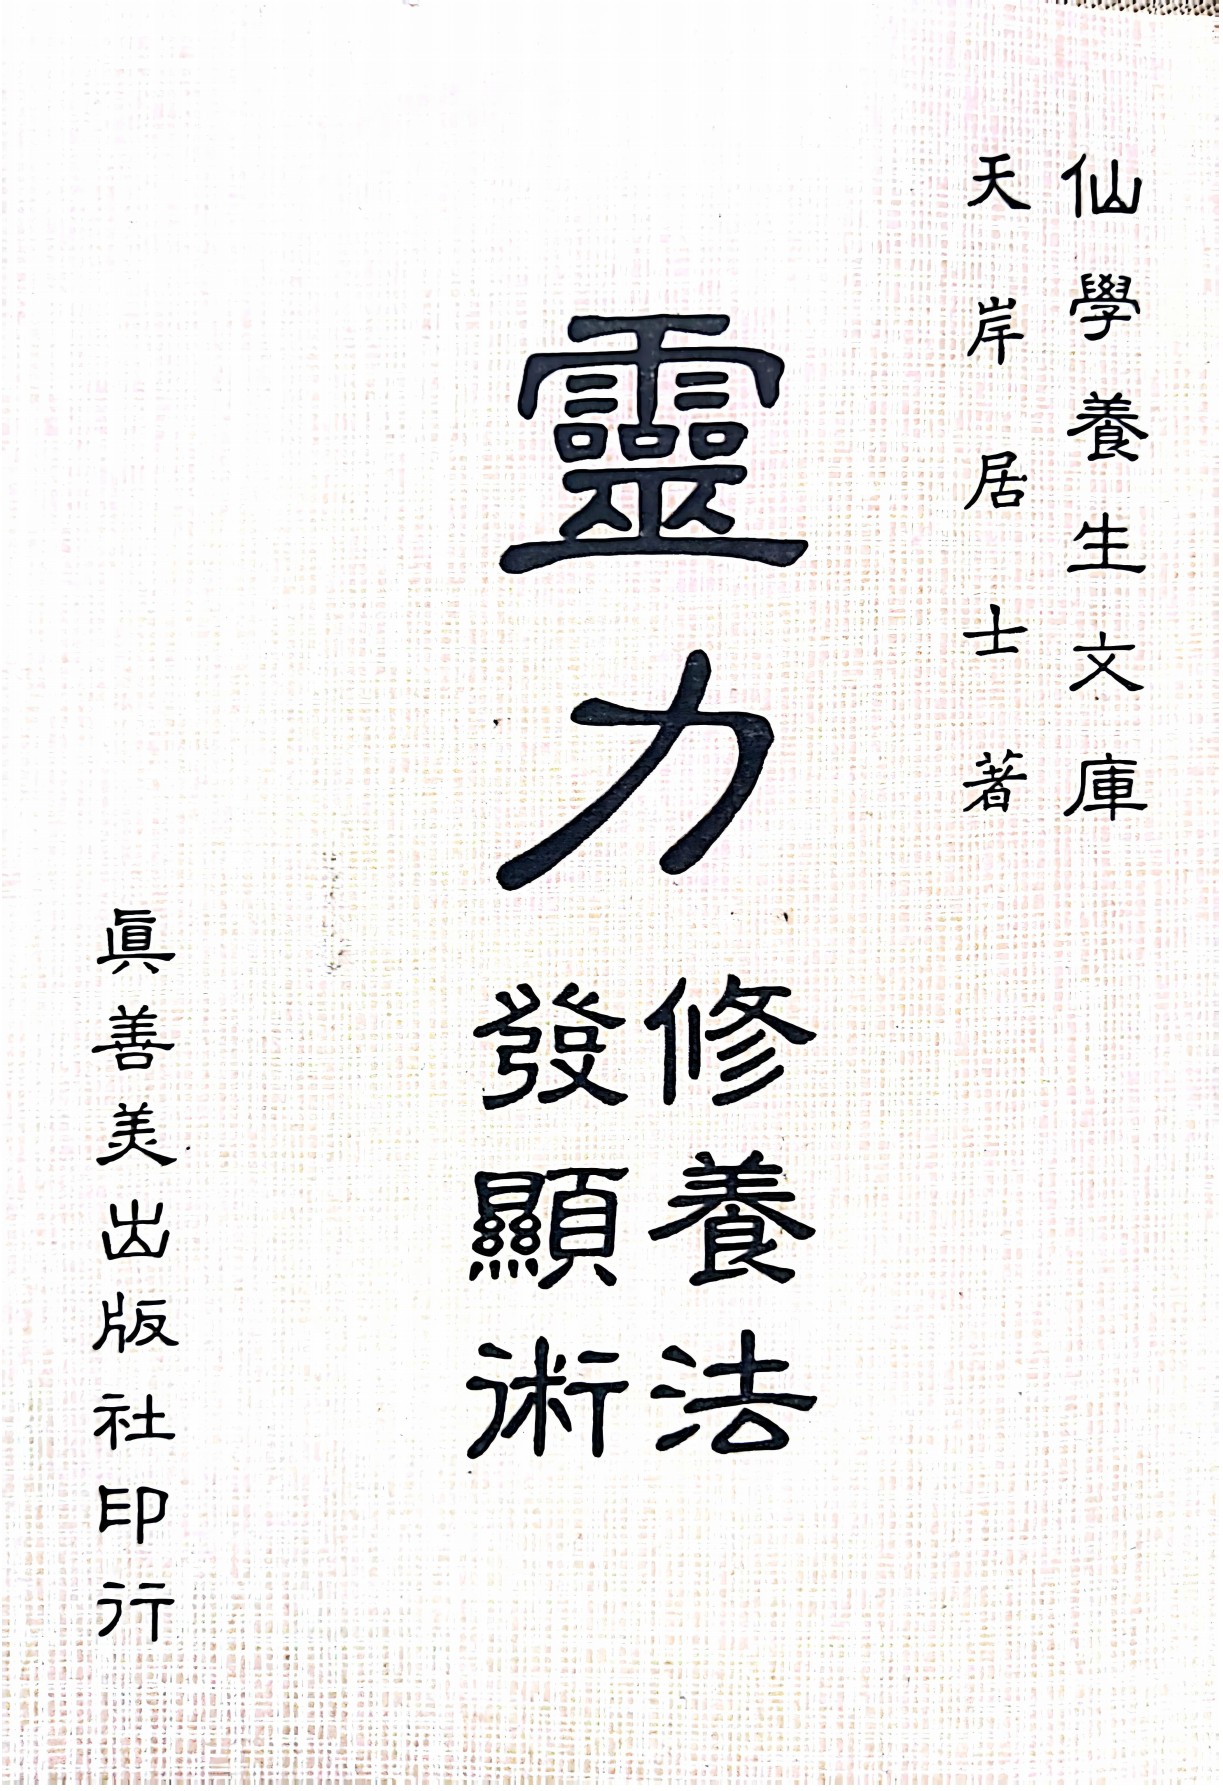 仙學養生文庫
天岸居士著
靈力
修養法
發顯術
眞善美出版社印行